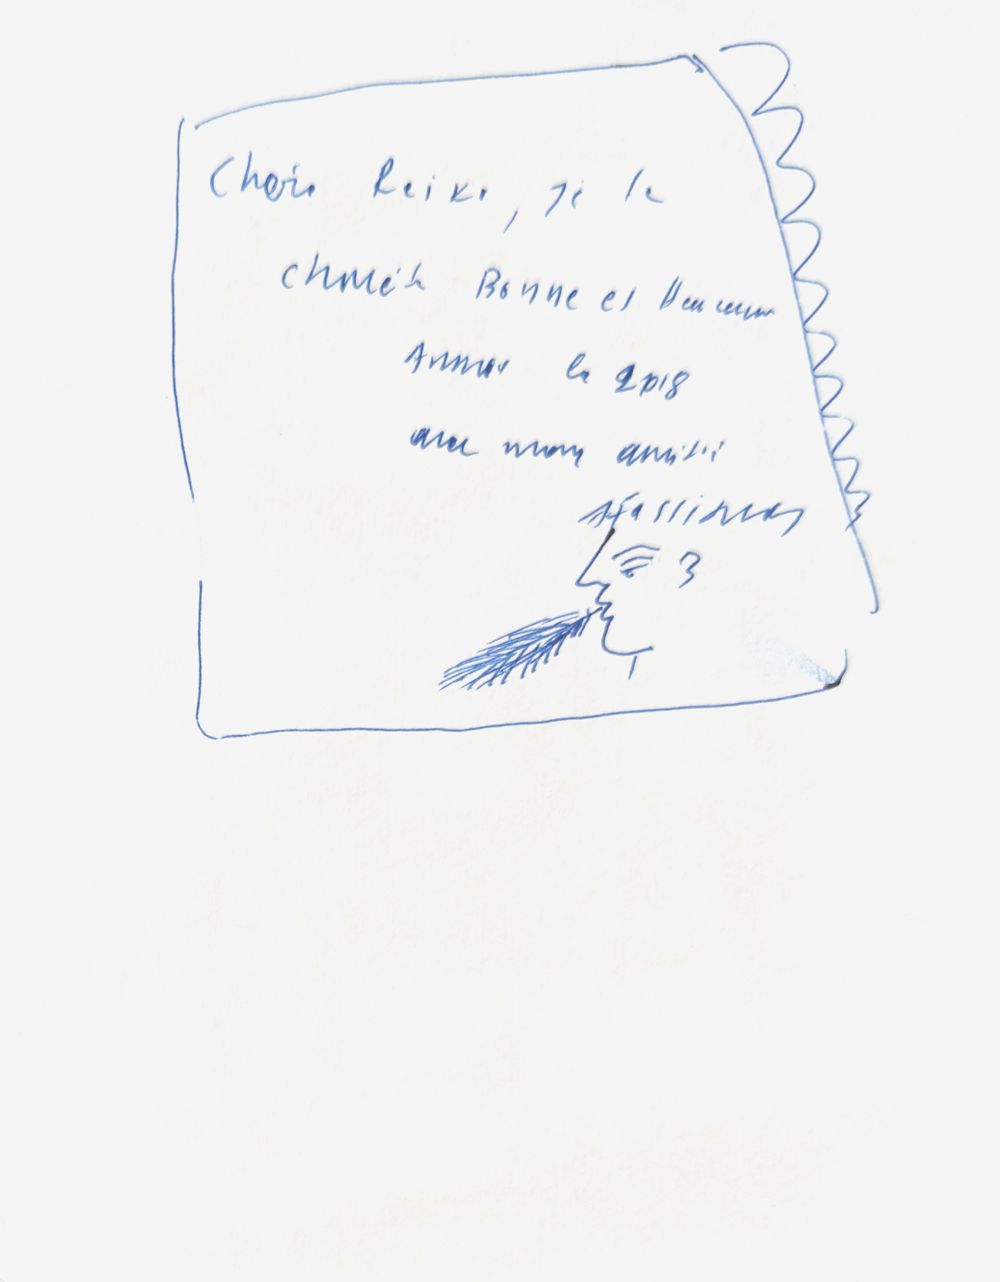 Chère Reiko, je te
souhaite Bonne et Heureuse
Année le 2018
avec mon amitié